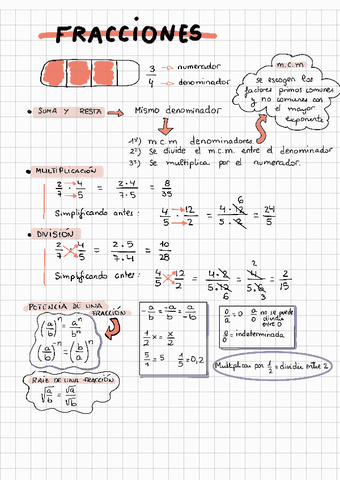 FRACCIONES
3 → numerador
4 → denominador
m.c.m
se escogen los
factores primos comunes
y no comunes con
el mayor
exponente
• SUMA Y RESTA → Mismo denominador
1º) m.c.m denominadores.
2º) Se divide el m.c.m. entre el denominador
3º) Se multiplica por el numerador.
• MULTIPLICACIÓN
2/7 · 4/5 = 2·4/7·5 = 8/35
Simplificando antes: 4/5 · 12/2 = 4·12/5·2 6 = 24/5
• DIVISIÓN
2/7 4/5 = 2·5/7·4 = 10/28
Simplificando antes: 4/5 12/2 = 4·2/5·12 6 = 4·2/5·6 3 = 2/15
POTENCIA DE UNA
FRACCIÓN
(a/b)^n = a^n/b^n
(a/b)^-n = (b/a)^n
RAIZ DE UNA FRACCIÓN
√a/b = √a/√b
-a/b = -a/b = a/-b
1/2 x = x/2
5/1 = 5 1/5 = 0,2
0/a = 0 a/0 no se puede
dividir
entre 0
0/0 = indeterminada
Multiplicar por 1/2 = dividir entre 2